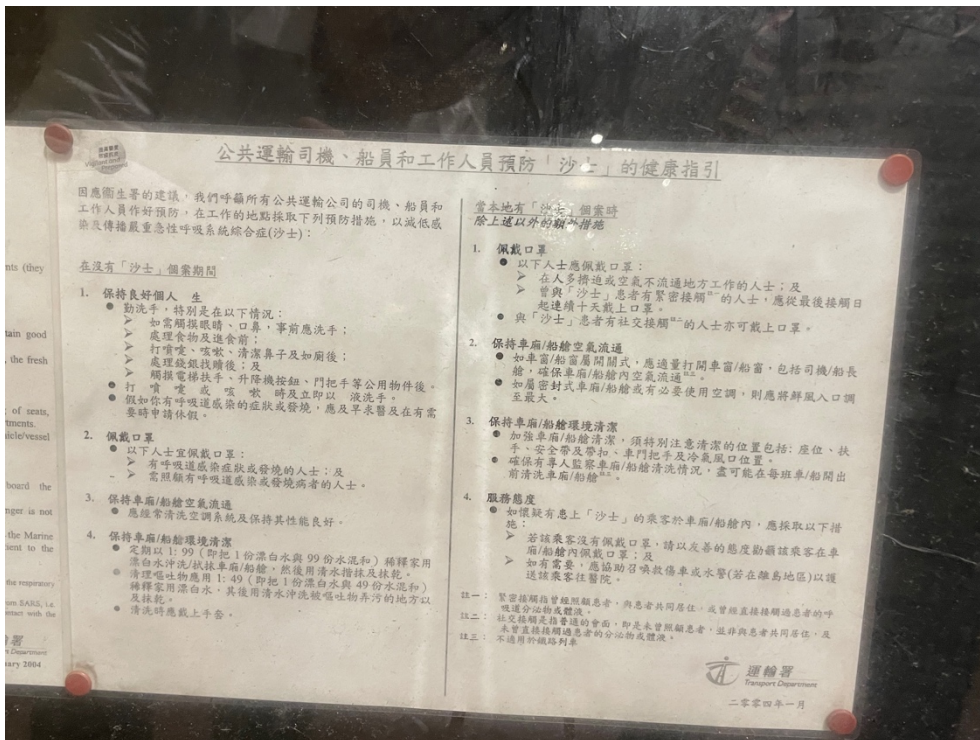 nts (they
tain good
, the fresh
of seats,
tments.
icle/vessel
board the
nger is not
the Marine
ient to the
the respiratory
om SARS, i.e.
ontact with the
署
rt Department
ary 2004
公共運輸司機、船員和工作人員預防「沙士」的健康指引
因應衞生署的建議，我們呼籲所有公共運輸公司的司機、船員和
工作人員作好預防，在工作的地點採取下列預防措施，以減低感
染及傳播嚴重急性呼吸系統綜合症(沙士)：
在沒有「沙士」個案期間
1. 保持良好個人 生
● 勤洗手，特別是在以下情況：
➢ 如需觸摸眼睛、口鼻，事前應洗手；
➢ 處理食物及進食前；
➢ 打噴嚏、咳嗽、清潔鼻子及如廁後；
➢ 處理錢銀找贖後；及
➢ 觸摸電梯扶手、升降機按鈕、門把手等公用物件後。
● 打 噴 嚏 或 咳 嗽 時及立即以 液洗手。
● 假如你有呼吸道感染的症狀或發燒，應及早求醫及在有需
要時申請休假。
2. 佩戴口罩
● 以下人士宜佩戴口罩：
➢ 有呼吸道感染症狀或發燒的人士；及
➢ 需照顧有呼吸道感染或發燒病者的人士。
3. 保持車廂/船艙空氣流通
● 應經常清洗空調系統及保持其性能良好。
4. 保持車廂/船艙環境清潔
● 定期以 1: 99 (即把 1 份漂白水與 99 份水混和) 稀釋家用
漂白水沖洗/拭抹車廂/船艙，然後用清水揩抹及抹乾。
● 清理嘔吐物應用 1: 49 (即把 1 份漂白水與 49 份水混和)
稀釋家用漂白水，其後用清水沖洗被嘔吐物弄污的地方以
及抹乾。
● 清洗時應戴上手套。
當本地有「沙士」個案時
除上述以外的額外措施
1. 佩戴口罩
● 以下人士應佩戴口罩：
➢ 在人多擠迫或空氣不流通地方工作的人士；及
➢ 曾與「沙士」患者有緊密接觸註一的人士，應從最後接觸日
起連續十天戴上口罩。
● 與「沙士」患者有社交接觸註二的人士亦可戴上口罩。
2. 保持車廂/船艙空氣流通
● 如車窗/船窗屬開關式，應適量打開車窗/船窗，包括司機/船長
艙，確保車廂/船艙內空氣流通註三。
● 如屬密封式車廂/船艙或有必要使用空調，則應將鮮風入口調
至最大。
3. 保持車廂/船艙環境清潔
● 加強車廂/船艙清潔，須特別注意清潔的位置包括: 座位、扶
手、安全帶及帶扣、車門把手及冷氣風口位置。
● 確保有專人監察車廂/船艙清洗情況，盡可能在每班車/船開出
前清洗車廂/船艙註三。
4. 服務態度
● 如懷疑有患上「沙士」的乘客於車廂/船艙內，應採取以下措
施：
➢ 若該乘客沒有佩戴口罩，請以友善的態度勸籲該乘客在車
廂/船艙內佩戴口罩；及
➢ 如有需要，應協助召喚救傷車或水警(若在離島地區)以護
送該乘客往醫院。
註一： 緊密接觸指曾經照顧患者，與患者共同居住，或曾經直接接觸過患者的呼
吸道分泌物或體液。
註二： 社交接觸是指普通的會面，即是未曾照顧患者，並非與患者共同居住，及
未曾直接接觸過患者的分泌物或體液。
註三： 不適用於鐵路列車
運輸署
Transport Department
二零零四年一月